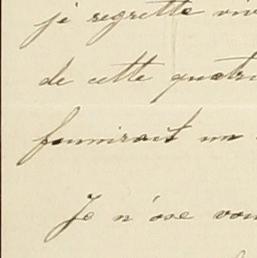 je regrette viv
de cette quatri
fournirait un
Je n'ose vou